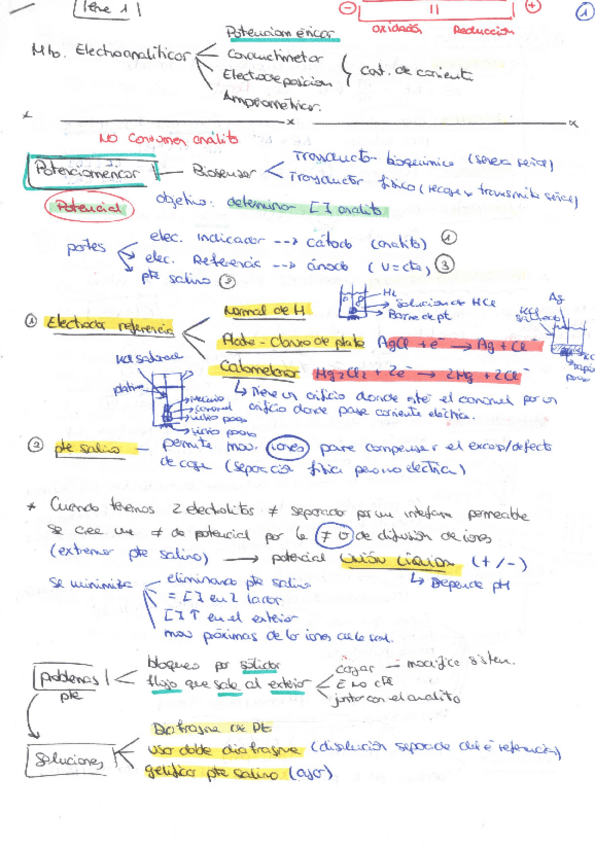 Tema 1
⊖ ⊕
oxidación Reducción
1
Potenciométricos
Mto. Electroanalíticos
Conductimetría
Electrodeposición
Cant. de corriente
Amperométricos.
NO consumen analito
Potenciométricos — Biosensor
Transductor bioquímico (genera señal)
Transductor físico (recoge y transmite señal)
Potencial
objetivo: determinar [ ] analito
partes
elec. Indicador --> cátodo (analito) ①
elec. Referencia --> ánodo (V=cte) ③
pte salino ②
① Electrodo referencia
Normal de H
H2
Solución de HCl
Barra de pt
Ag
KCl
Plata - Cloruro de plata AgCl + e⁻ → Ag + Cl⁻
Calomelanos Hg2Cl2 + 2e⁻ → 2Hg + 2Cl⁻
KCl saturado
platino
mercurio
calomel
vidrio poroso
↳ Tiene un orificio donde está el calomel por un
orificio donde pasa corriente eléctrica.
② pte salino — permite mov. iones para compensar el exceso/defecto
de carga (separación física pero no eléctrica)
* Cuando tenemos 2 electrolitos ≠ separados por un interfase permeable
se crea una ≠ de potencial por la ≠ v de difusión de iones
(extremos pte salino) → potencial UNIÓN LÍQUIDA (+/-)
↳ Depende pH
se minimiza
eliminando pte salino
= [ ] en 2 lados
[ ] ↑ en el exterior
mov próximas de los iones de la sal.
problemas pte
bloqueo por sólidos
flujo que sale al exterior
coger — modifica sistem.
E no cte
junto con el analito
Soluciones
Diafragma de PE
uso doble diafragma (disolución separada de referencia)
gelifica pte salino (agar)